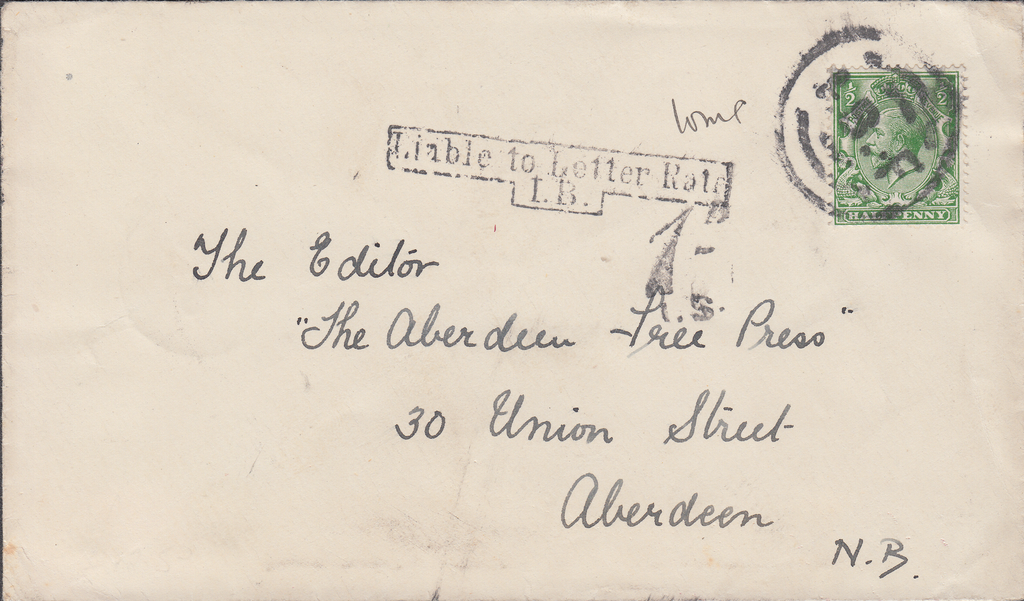 1/2 1/2
HALFPENNY
Liable to Letter Rate
I.B.
1D
The Editor
"The Aberdeen Free Press"
30 Union Street
Aberdeen
N.B.